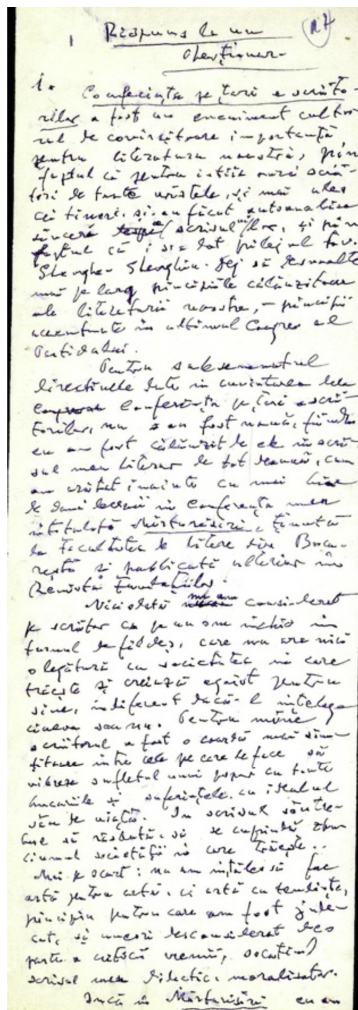 Răspuns la un
chestionar
1. Conferința pe țară a scriito-
rilor a fost un eveniment cultu-
ral de covîrșitoare importanță
pentru literatura noastră, prin
faptul că pentru întîia oară scrii-
tori de toate vîrstele, și mai ales
cei tineri, și-au făcut autoanaliza
sinceră scrisul lor, și prin
faptul că i s-a dat prilejul tov.
Gheorghe Gheorghiu-Dej să dezvolte
mai pe larg principiile călăuzitoare
ale literaturii noastre, – principii
accentuate în ultimul Congres al
Partidului.
Pentru subsemnatul
directivele date în cuvîntarea dela
Conferința pe țară a scrii-
torilor, nu s-au fost nouă, fiindcă
eu am fost călăuzit de ele în scri-
sul meu literar de tot deauna, cum
am arătat înainte cu mai bine
de două decenii în conferința mea
intitulată Mărturisiri, ținută
la Facultatea de litere din Bucu-
rești și publicată ulterior în
Revista Fundațiilor.
Niciodată nu am considerat
pe scriitor ca pe un om închis în
turnul de fildeș, care nu are nicio
o legătură cu societatea în care
trăește și creiază egoist pentru
sine, indiferent dacă-l înțelege
cineva sau nu. Pentru mine
scriitorul a fost o coardă mai sim-
țitoare între cele pe care le face să
vibreze sufletul unui popor cu toate
bucuriile și suferințele, cu idealul
său de viață. In scrisul său tre-
bue să răsbată, să se cuprindă sbu-
ciumul societății în care trăește..
Mai pe scurt: nu am înțeles să fac
artă pentru artă, ci artă cu tendință,
principiu pentru care am fost jude-
cat, și uneori desconsiderat de o
parte a criticii vremii, socotind
scrisul meu didactic, moralizator.
Incă în Mărturisiri eu am